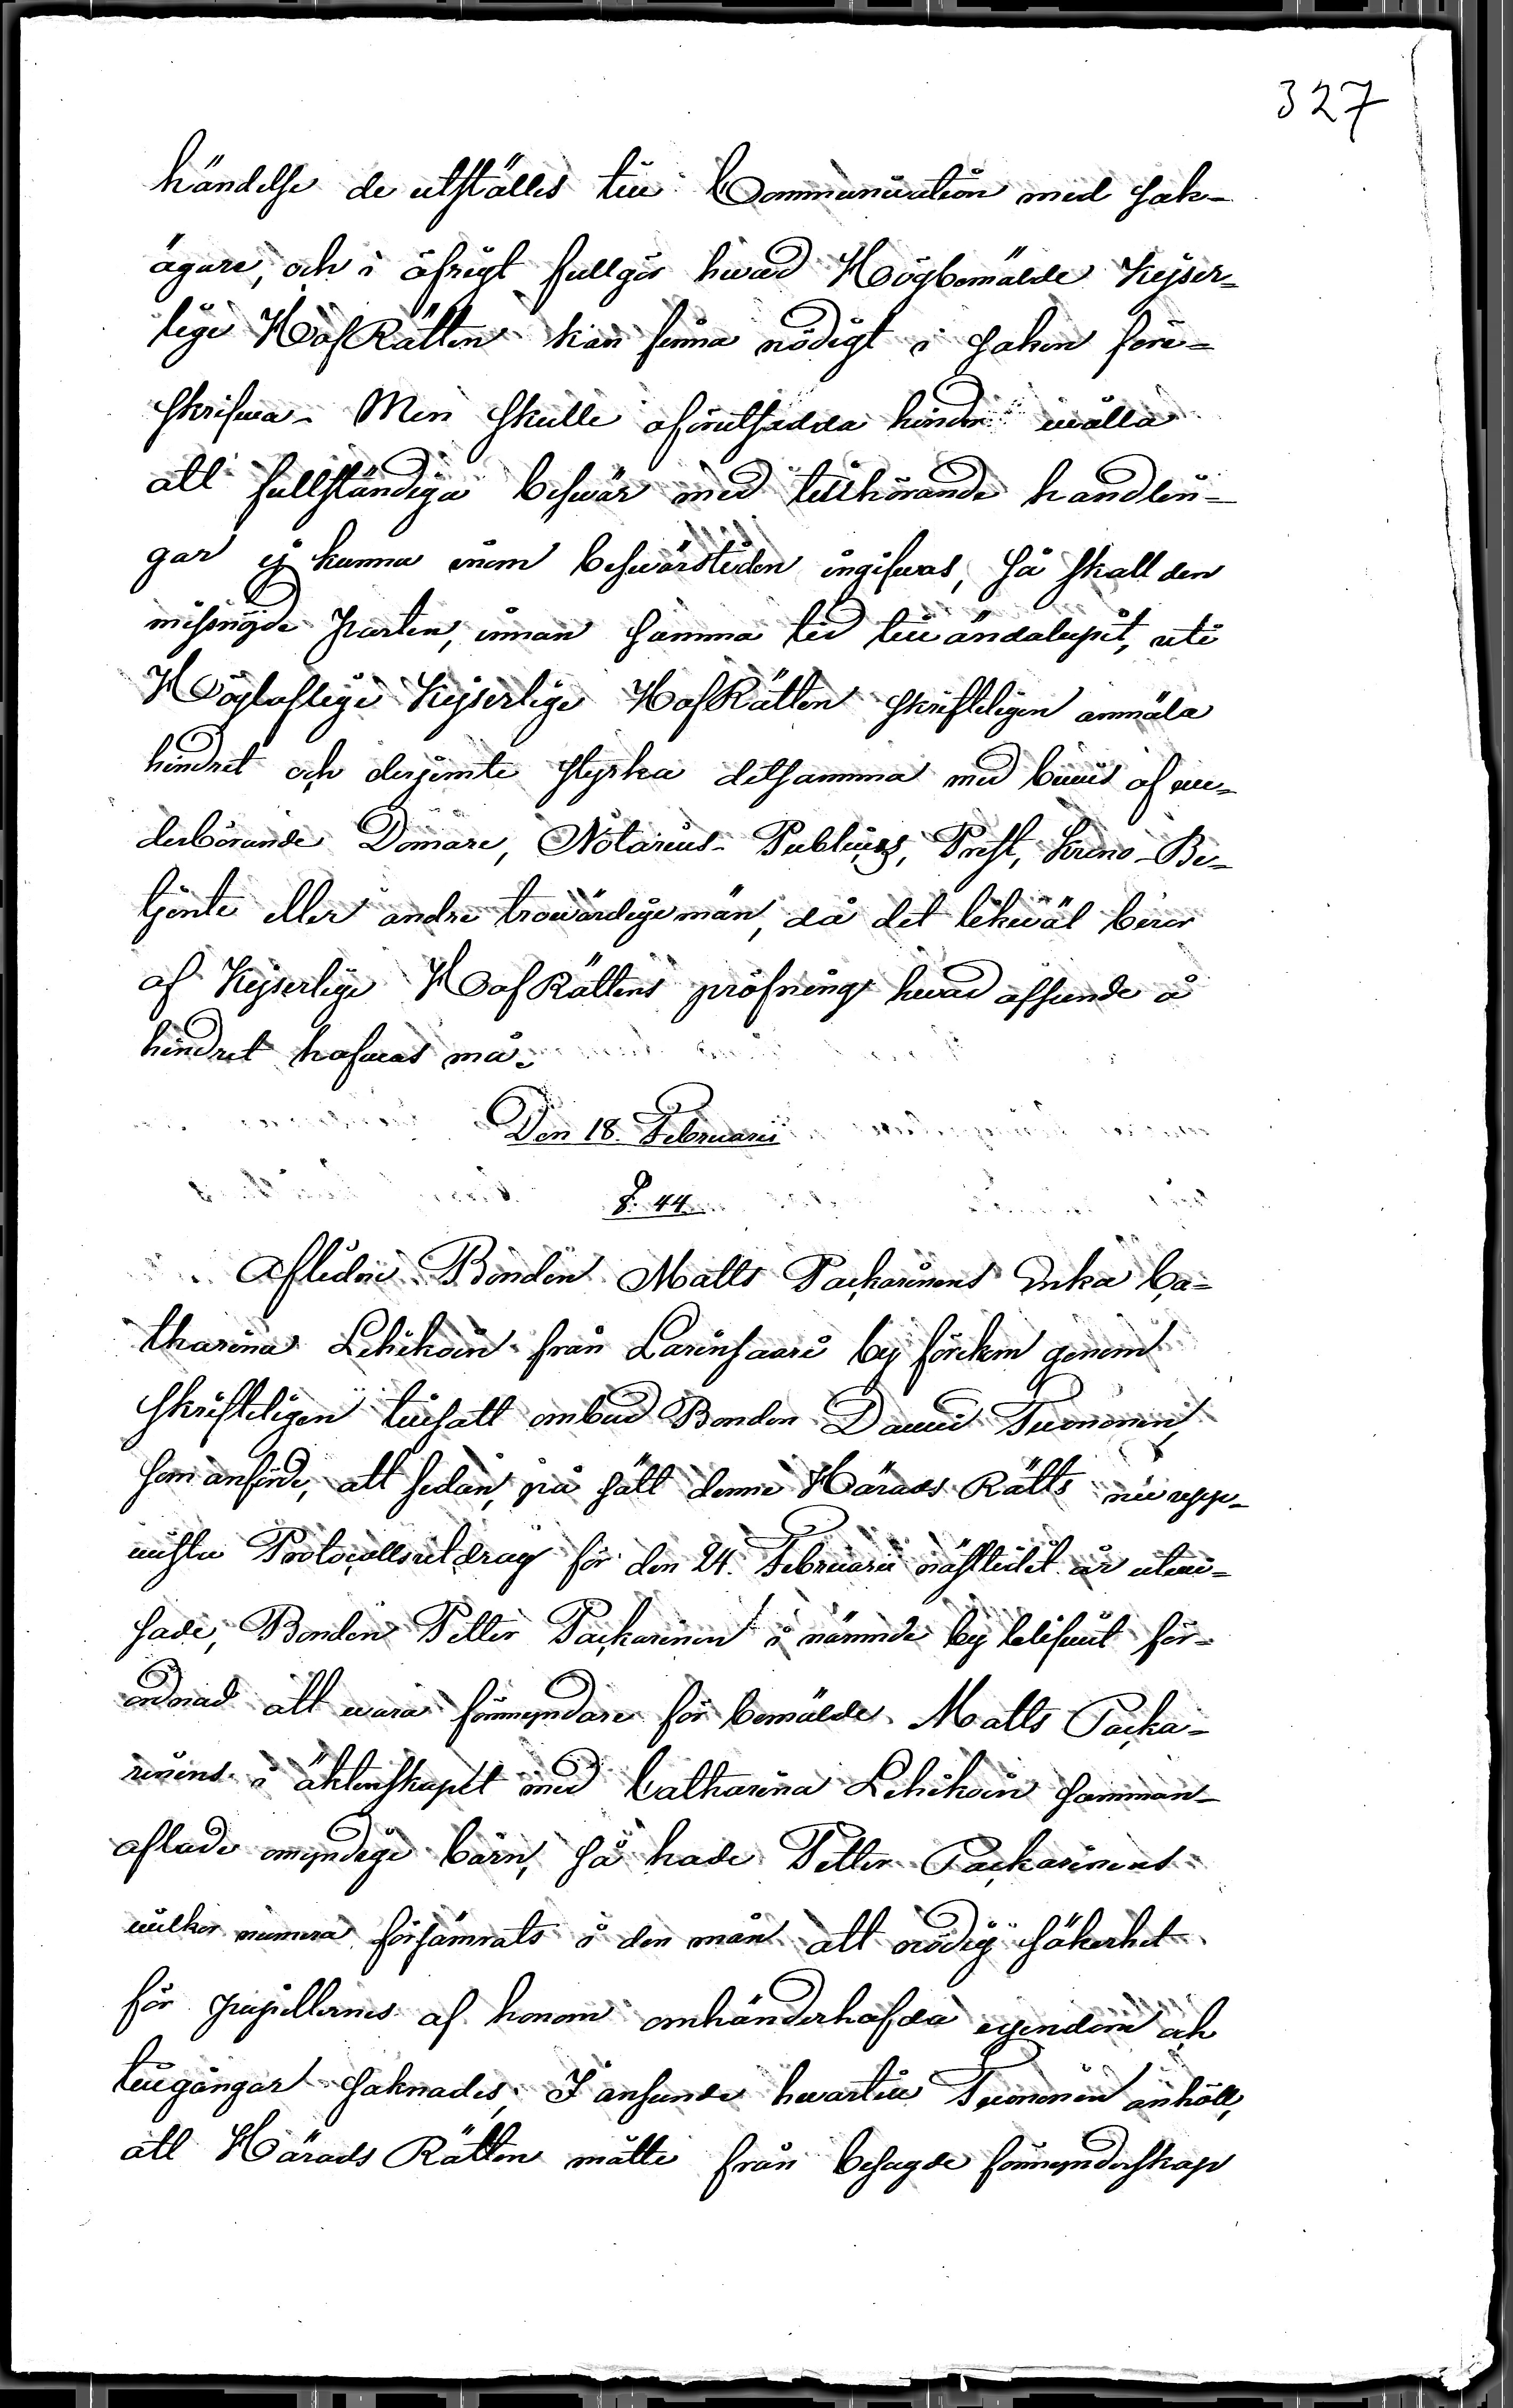 327
händelse de utställes till Communication med sak-
ägare, och i öfrigt fullgör hwad Högbemälde Kejser-
lige HofRätten kan finna nödigt i saken före-
skrifwa. Men skulle oförutsedda hinder wålla
att fullständiga beswär med tillhörande handlin-
gar ej kunna inom beswärstiden ingifwas, så skall den
missnöjde Parten, innan samma tid till ändalupit, uti
Högloflige Kejserlige HofRätten skrifteligen anmäla
hindret och derjemte styrka detsamma med bewis af we-
derbörande Domare, Notarius Publicus, Prest, Krono-Be-
tjente eller andre trowärdige män, då det likwäl beror
af Kejserlige HofRättens pröfning hwad afseende å
hindret hafwas må.
Den 18. Februarii
§. 44
Aflidne Bonden Matts Packarinens Enka Ca-
tharina Lehikoin från Larinsaari by förekom genom
skrifteligen tillsatt ombud Bonden Dawid Tuononen,
som anförde, att sedan, på sätt denne Härads Rätts nu upp-
wiste Protocollsutdrag för den 24. Februarii nästledit år utwi-
sade, Bonden Petter Packarinen i nämnde by blifwit för-
ordnad att wara förmyndare för bemälde Matts Packa-
rinens i äktenskapet med Catharina Lehikoin samman-
aflade omyndige barn, så hade Petter Packarinens
wilkor numera försämrats i den mån att nödig säkerhet
för pupillernes af honom omhänderhafda egendom och
tillgångar saknades. I anseende hwartill Tuononen anhöll,
att Härads Rätten måtte från besagde förmynderskap